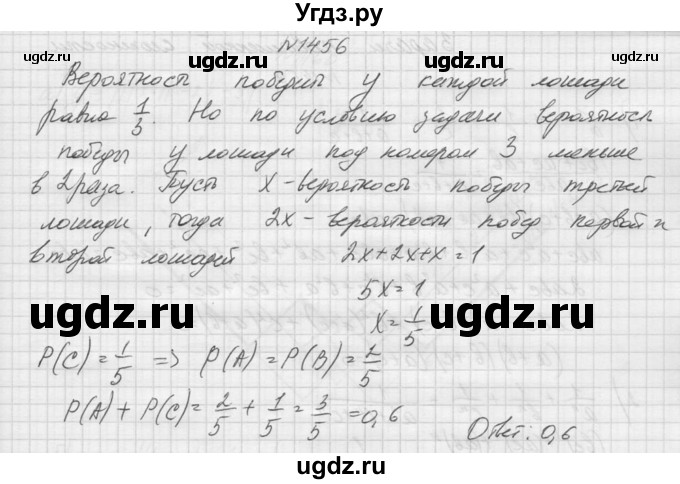 Угдз.ру
№1456
ugdz.ru ugdz.ru ugdz.ru
Вероятность победы у каждой лошади
равна 1/3. Но по условию задачи вероятность
победы у лошади под номером 3 меньше
в 2 раза. Пусть x - вероятность победы третьей
лошади, тогда 2x - вероятности побед первой и
второй лошадей 2x+2x+x=1
ugdz.ru ugdz.ru ugdz.ru
5x=1
x=1/5
P(C)=1/5 => P(A)=P(B)=2/5
ugdz.ru ugdz.ru ugdz.ru
P(A)+P(C)=2/5+1/5=3/5=0,6
Ответ: 0,6
ugdz.ru